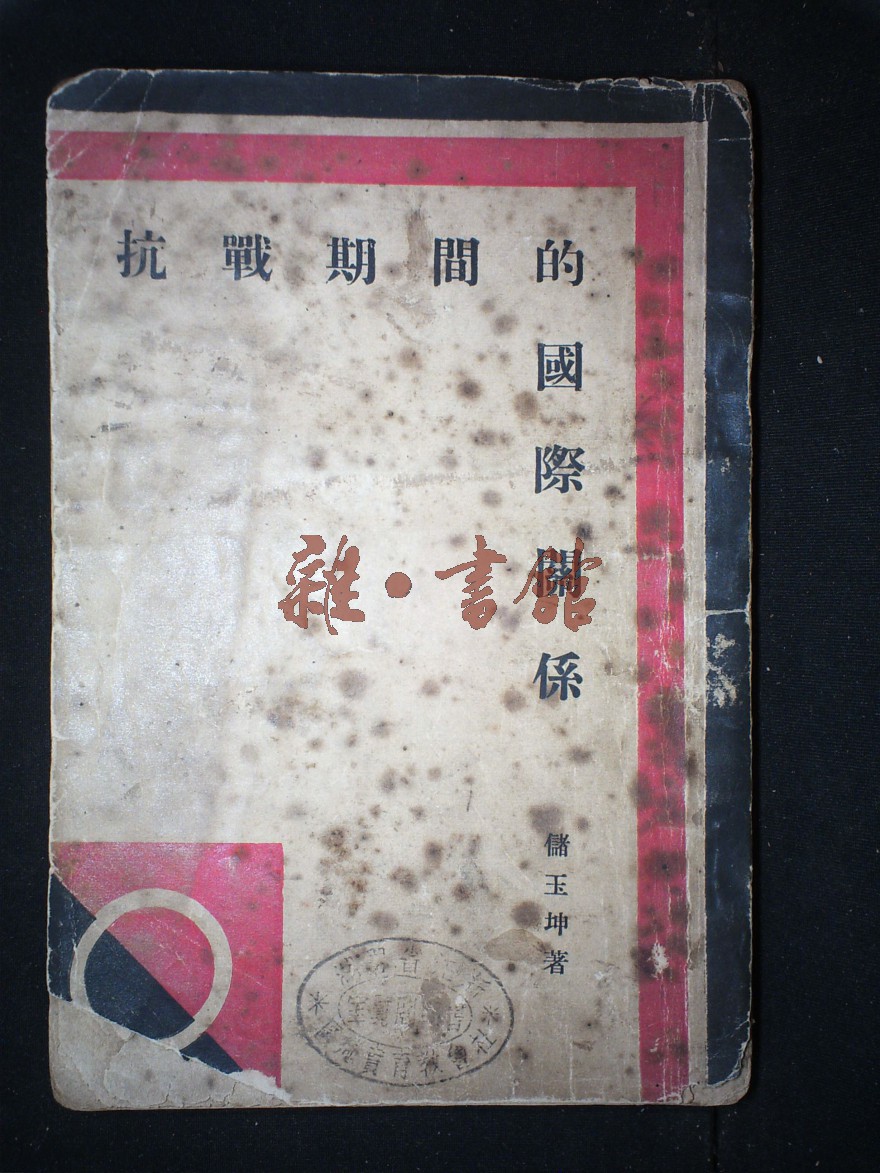 抗戰期間的
國際關係
儲玉坤著
雜·書館